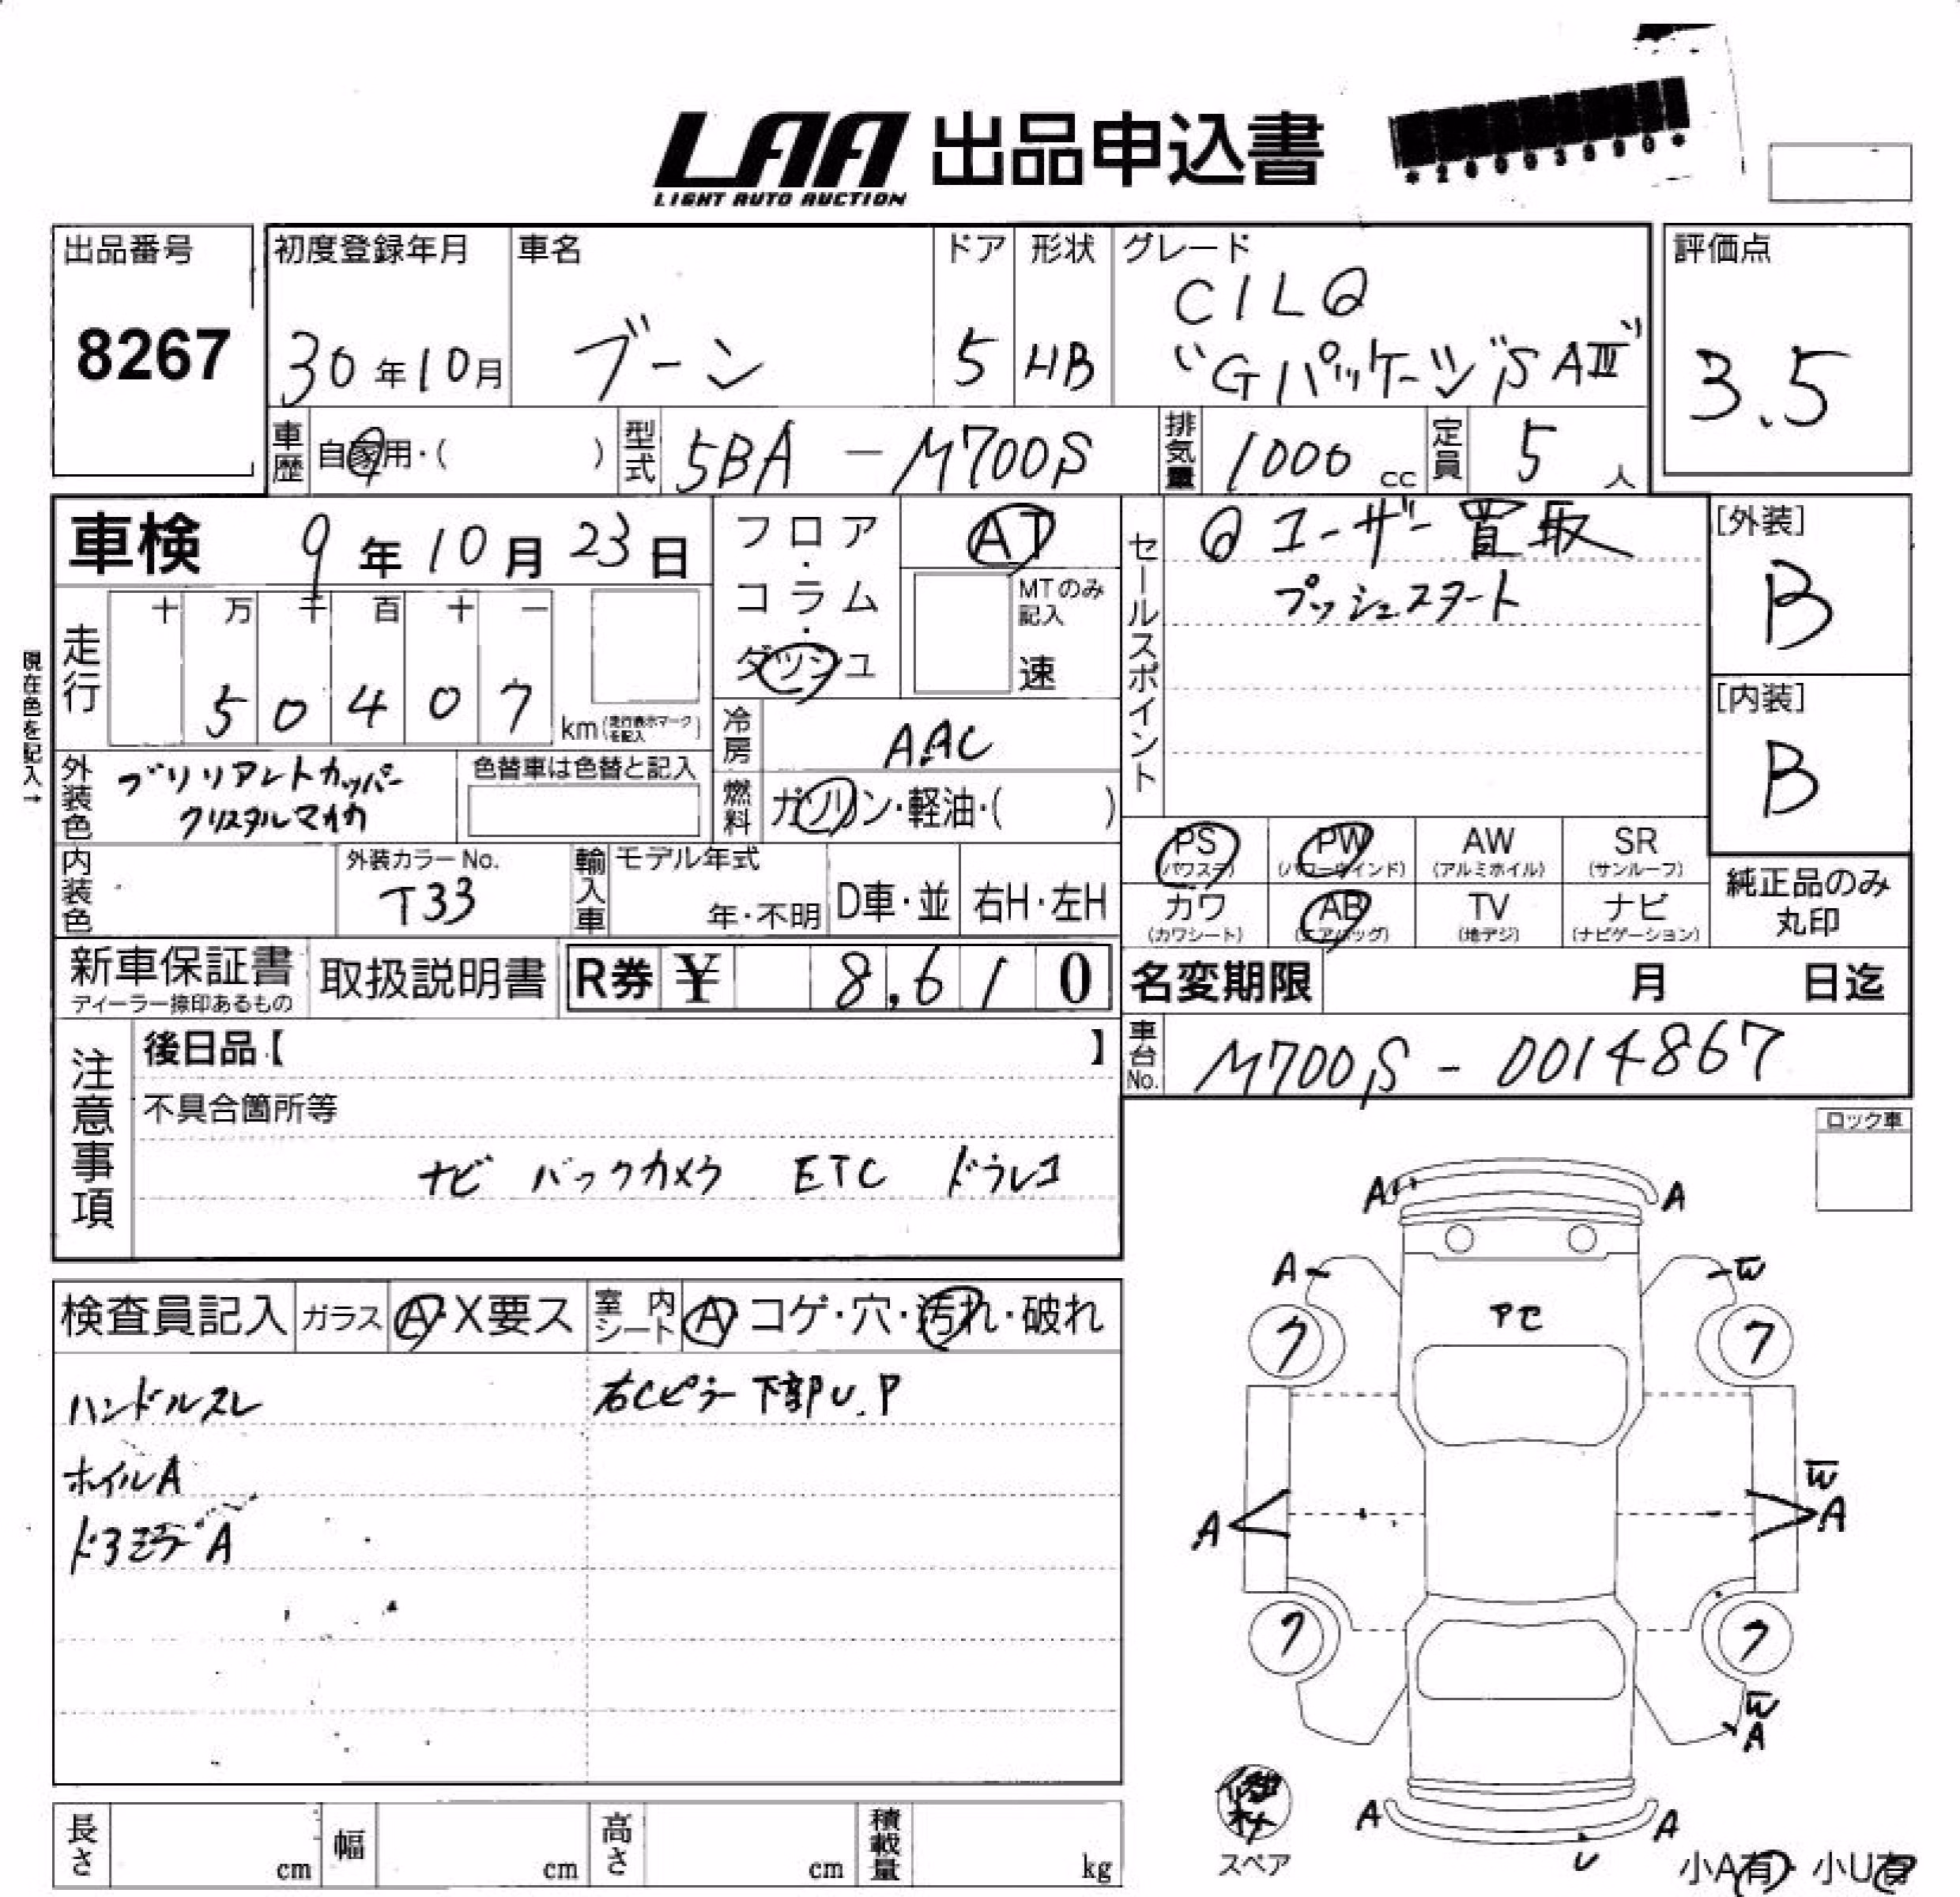 LAA 出品申込書
LIGHT AUTO AUCTION
出品番号
8267
初度登録年月
30年10月
車名
ブーン
ドア
5
形状
HB
グレード
CILQ
"Gパッケージ SAⅢ"
評価点
3.5
車歴 自家用・( )
型式 5BA - M700S
排気量 1000 cc
定員 5 人
車検 9年10月23日
フロア・コラム・ダッシュ
AT
MTのみ記入
速
セールスポイント
ユーザー買取
プッシュスタート
[外装]
B
[内装]
B
現在色を記入→
走行
十 万 千 百 十 一
5 0 4 0 7
km (走行表示マークを記入)
冷房 AAC
燃料 ガソリン・軽油・( )
外装色 ブリリアントカッパー
クリスタルマイカ
色替車は色替と記入
内装色
外装カラーNo.
T33
輸入車
モデル年式
年・不明
D車・並
右H・左H
PS (パワステ)
PW (パワーウインド)
AW (アルミホイル)
SR (サンルーフ)
カワ (カワシート)
AB (エアバッグ)
TV (地デジ)
ナビ (ナビゲーション)
純正品のみ
丸印
新車保証書
ディーラー捺印あるもの
取扱説明書
R券 ¥ 8,610
名変期限 月 日迄
車台No. M700S - 0014867
注意事項
後日品【 】
不具合箇所等
ナビ バックカメラ ETC ドラレコ
ロック車
検査員記入
ガラス A・X要ス
室内シート A・コゲ・穴・汚れ・破れ
ハンドルスレ
右Cピラー下部U.P
ホイルA
ドアミラーA
A A
A W
アセ
7 7
W
A A
7 7
W
A
A A
U
スペア
小A有・小U有
長さ cm
幅 cm
高さ cm
積載量 kg